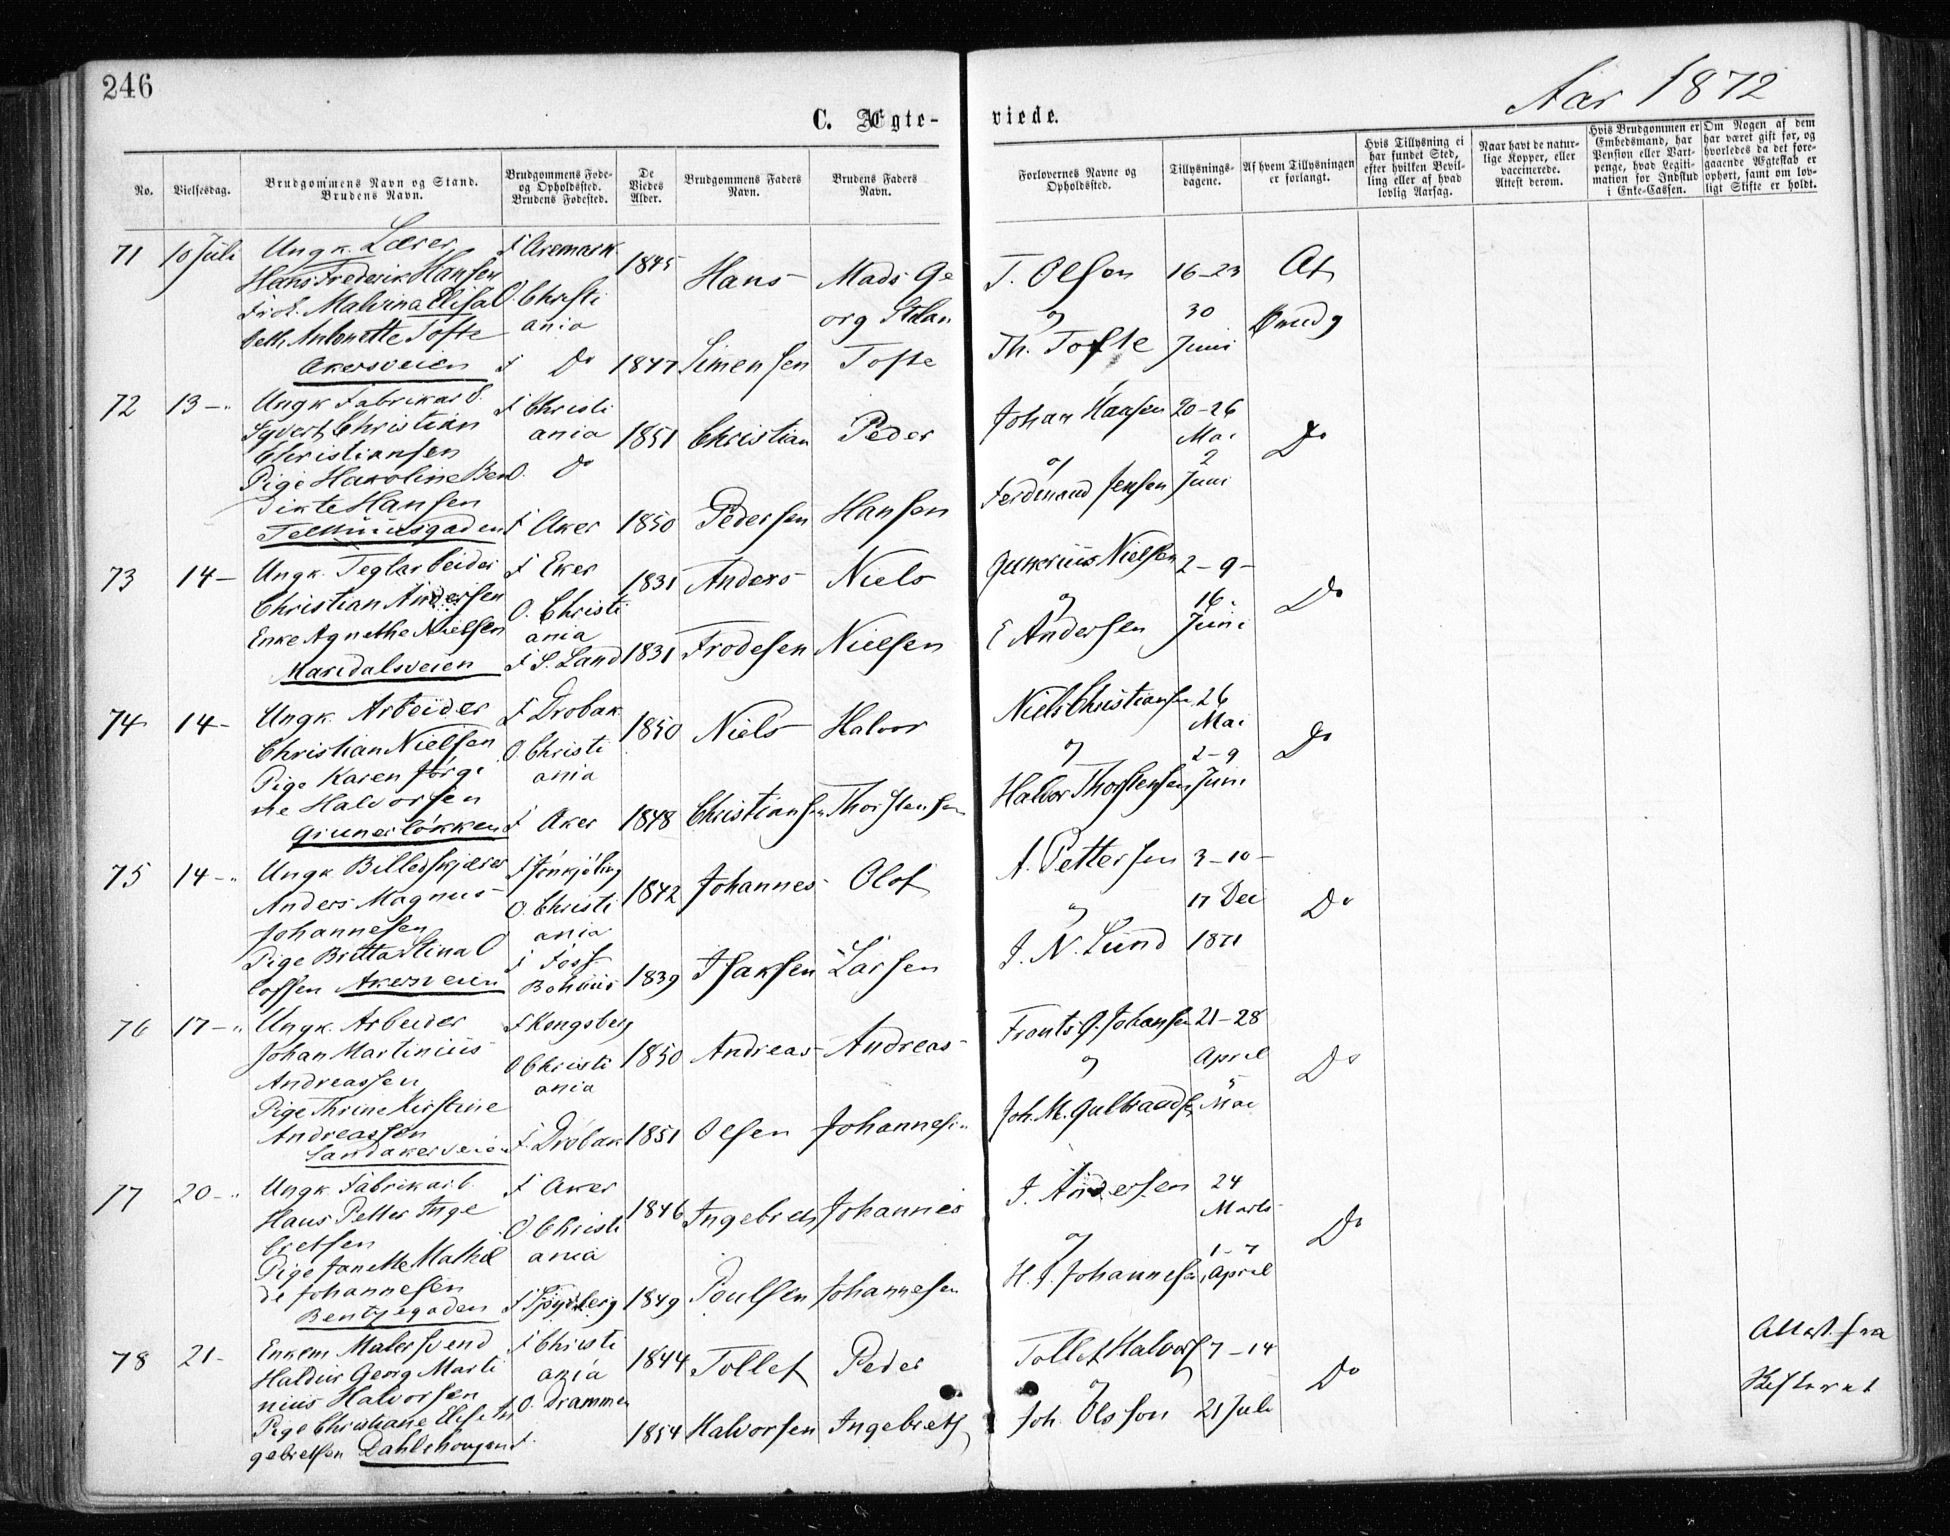 246
Aar 1872
C. Ægte-
viede.
No.
Vielsesdag.
Brudgommens Navn og Stand.
Brudens Navn.
Brudgommens Føde-
og Opholdssted.
Brudens Fødested.
De
Viedes
Alder.
Brudgommens Faders
Navn.
Brudens Faders
Navn.
Forlovernes Navne og
Opholdssted.
Tillysnings-
dagene.
Af hvem Tillysningen
er forlangt.
Hvis Tillysning ei
har fundet Sted,
efter hvilken Bevil-
ling eller af hvad
lovlig Aarsag.
Naar havt de natur-
lige Kopper, eller
vaccinerede.
Attest derom.
Hvis Brudgommen er
Embedsmand, har
Pension eller Vart-
penge, hvad Legiti-
mation for Indskud
i Enke-Cassen.
Om Nogen af dem
har været gift før, og
hvorledes da det fore-
gaaende Ægteskab er
ophørt, samt om lov-
ligt Skifte er holdt.
71 10 Juli
Ungk. Lærer
Hans Frederik Hansen
Frøk. Malvina Elisa
beth Antonette Tofte
Akersveien
F Aremark
O. Christi
ania
F Do
1845
1847
Hans
Simensen
Mads Ge
org Stdan
Tofte
T. Olsen
og
Th. Tofte
16-23
30
Juni
Af
Brudg
72 13 -
Ungk Fabrikarb.
Syvert Christian
Christiansen
Pige Karoline Ben
dikte Hansen
Telthuusgaden
F Christi
ania
O. Do
F Aker
1851
1850
Christian
Pedersen
Peder
Hansen
Johan Hansen
og
Ferdinand Jensen
20-26
Mai
2
Juni
Do
73 14 -
Ungk. Teglarbeider
Christian Andersen
Enke Agnethe Nielsen
Maridalsveien
F Eker
O. Christi
ania
F S. Land
1831
1831
Anders
Frodesen
Niels
Nielsen
Gunerius Nielsen
og
E Andersen
2-9-
16.
Juni
Do
74 14 -
Ungk. Arbeider
Christian Nielsen
Pige Karen Jørgi
ne Halvorsen
Grunerløkken
F Drøbak
O Christi
ania
F Aker
1850
1848
Niels
Christiansen
Halvor
Thorstensen
Niels Christiansen
og
Halvor Thorstensen
26
Mai
2-9
Juni
Do
75 14 -
Ungk Billedskjærer
Anders Magnus
Johannesen
Pige Britta Stina O
lofsen Akersveien
F Jønkjøbing
O. Christi
ania
F Foss
Bohuus
1842
1839
Johannes
Isaksen
Olof
Larsen
A. Pettersen
og
J. N. Lund
3-10-
17 Dec
1871
Do
76 17 -
Ungk. Arbeider
Johan Martinius
Andreassen
Pige Thrine Kirstine
Andreassen
Sandakerveien
F Kongsberg
O Christi
ania
F. Drøbak
1850
1851
Andreas
Olsen
Andreas
Johannesen
Frants G. Johansen
og
Joh. M. Gulbrandsen
21-28
April
5
Mai
Do
77 20 -
Ungk. Fabrikarb.
Hans Petter Inge
bretsen
Pige Janette Mathil
de Johannesen
Bentzegaden
F Aker
O Christi
ania
1846
1849
Ingebreth
Poulsen
Johannes
Johannesen
J. Andersen
og
H. J. Johannesen
24
Marts
1-7
April
Do
78 21 -
Enkem Malersvend
Haldur Georg Marti
nius Halvorsen
Pige Christiane Elise In
gebretsen Dahlehougen
F Christi
ania
O. Drammen
F.
1844
1854
Tollef
Halvorsen
Peder
Ingebrets
Tollef Halvors
og
Joh. Olsson
7-14
21 Juli
Do
Attest fra
Skifteret